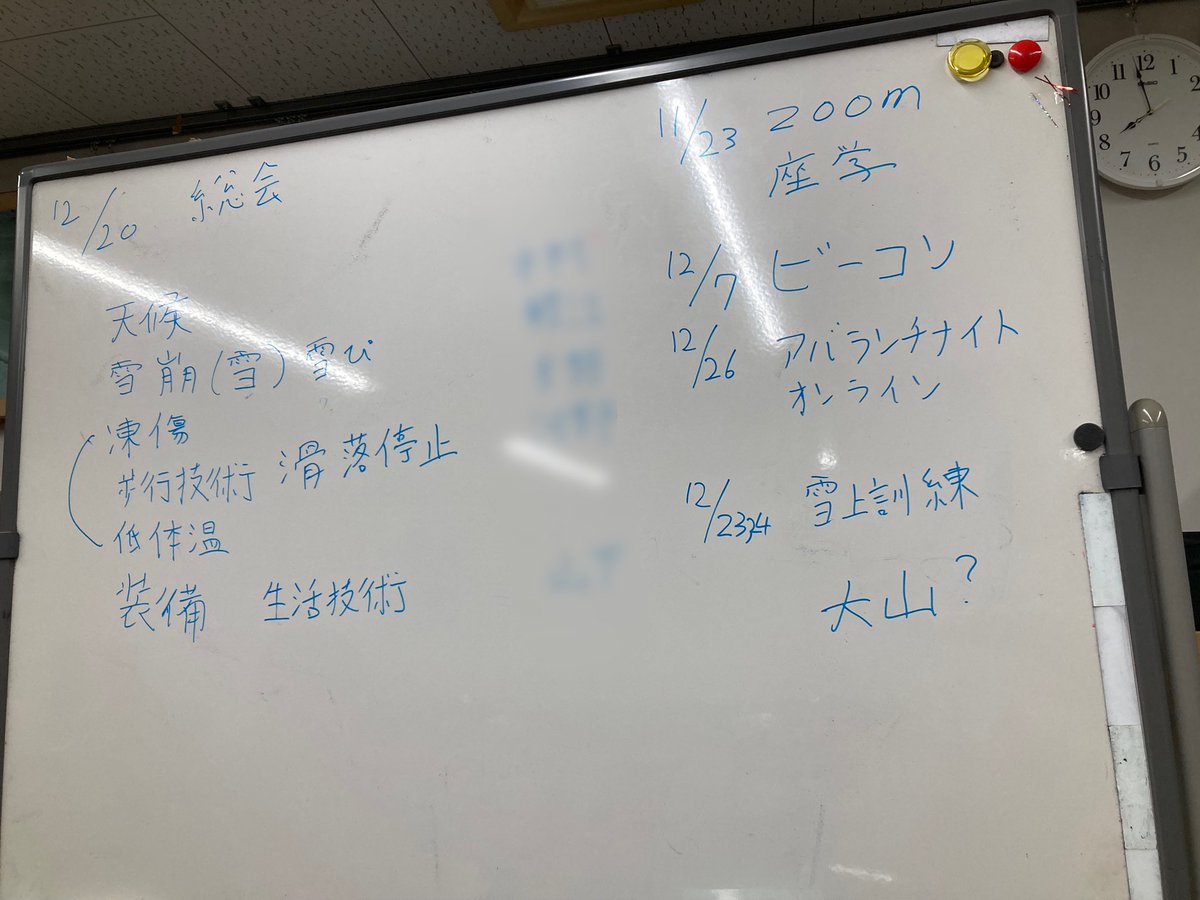 12/20 総会
天候
雪崩(雪)雪ぴ
凍傷
歩行技術 滑落停止
低体温
装備 生活技術
11/23 zoom
座学
12/7 ビーコン
12/26 アバランチナイト
オンライン
12/23,24 雪上訓練
大山?
11 12 1
10 2
9
8
7 6 5